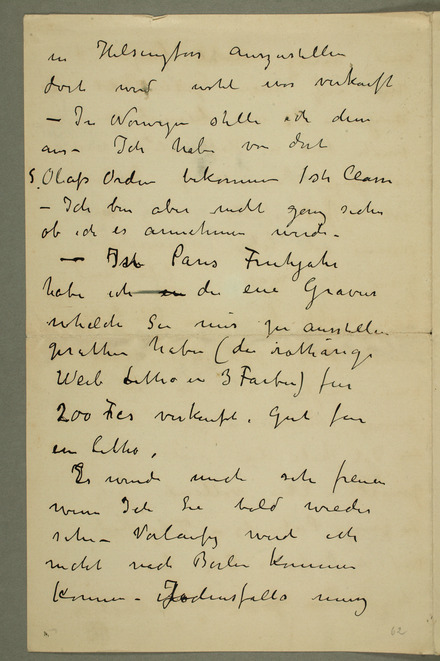 in Helsingfors auszustellen
dort wird wohl was verkauft
– In Norwegen stelle ich dann
aus – Ich habe von dort
S. Olafs Orden bekommen 1ste Classe
– Ich bin aber nicht ganz sicher
ob ich es annehmen werde –
– Ist Paris Frühjahr
habe ich die eine Gravur
welche Sie mir zu ausstellen
gerathen haben (das rothhärige
Weib Litho in 3 Farben) für
200 Fcs verkauft. Gut für
ein Litho.
Es würde mich sehr freuen
wenn Ich Sie bald wieder
sehe – Vorläufig werd ich
nicht nach Berlin kommen
können – Jedenfalls
62